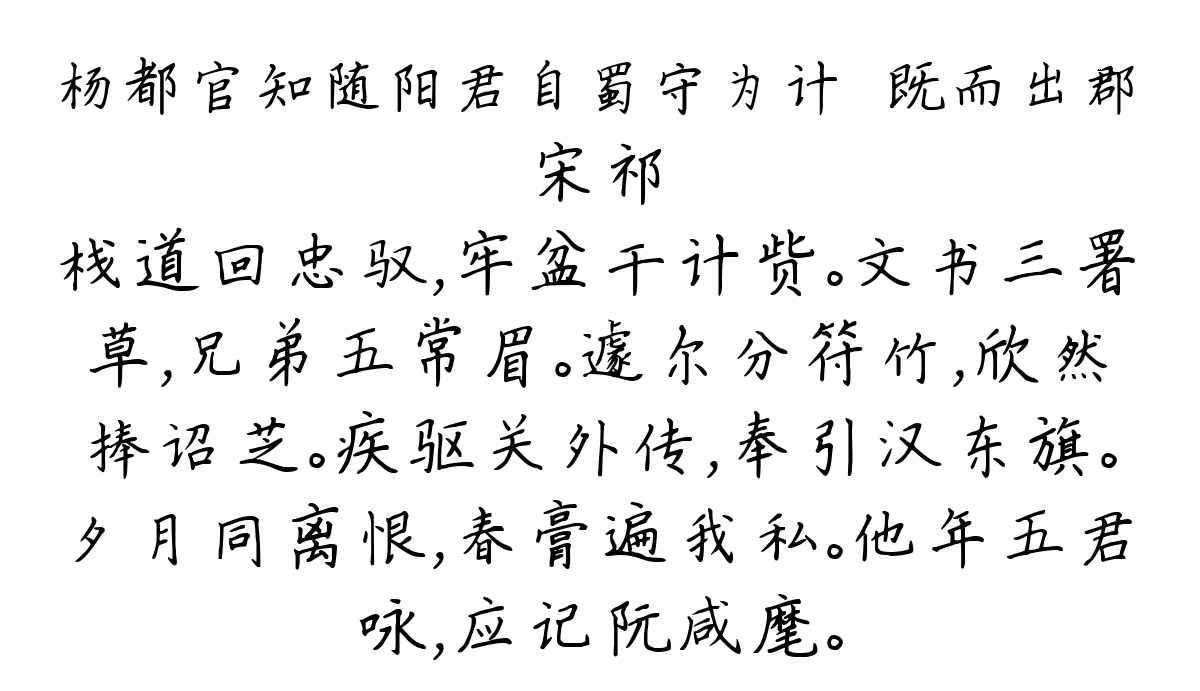 杨都官知随阳君自蜀守为计 既而出郡
宋祁
栈道回忠驭,牢盆干计赀。文书三署
草,兄弟五常眉。遽尔分符竹,欣然
捧诏芝。疾驱关外传,奉引汉东旗。
夕月同离恨,春膏遍我私。他年五君
咏,应记阮咸麾。